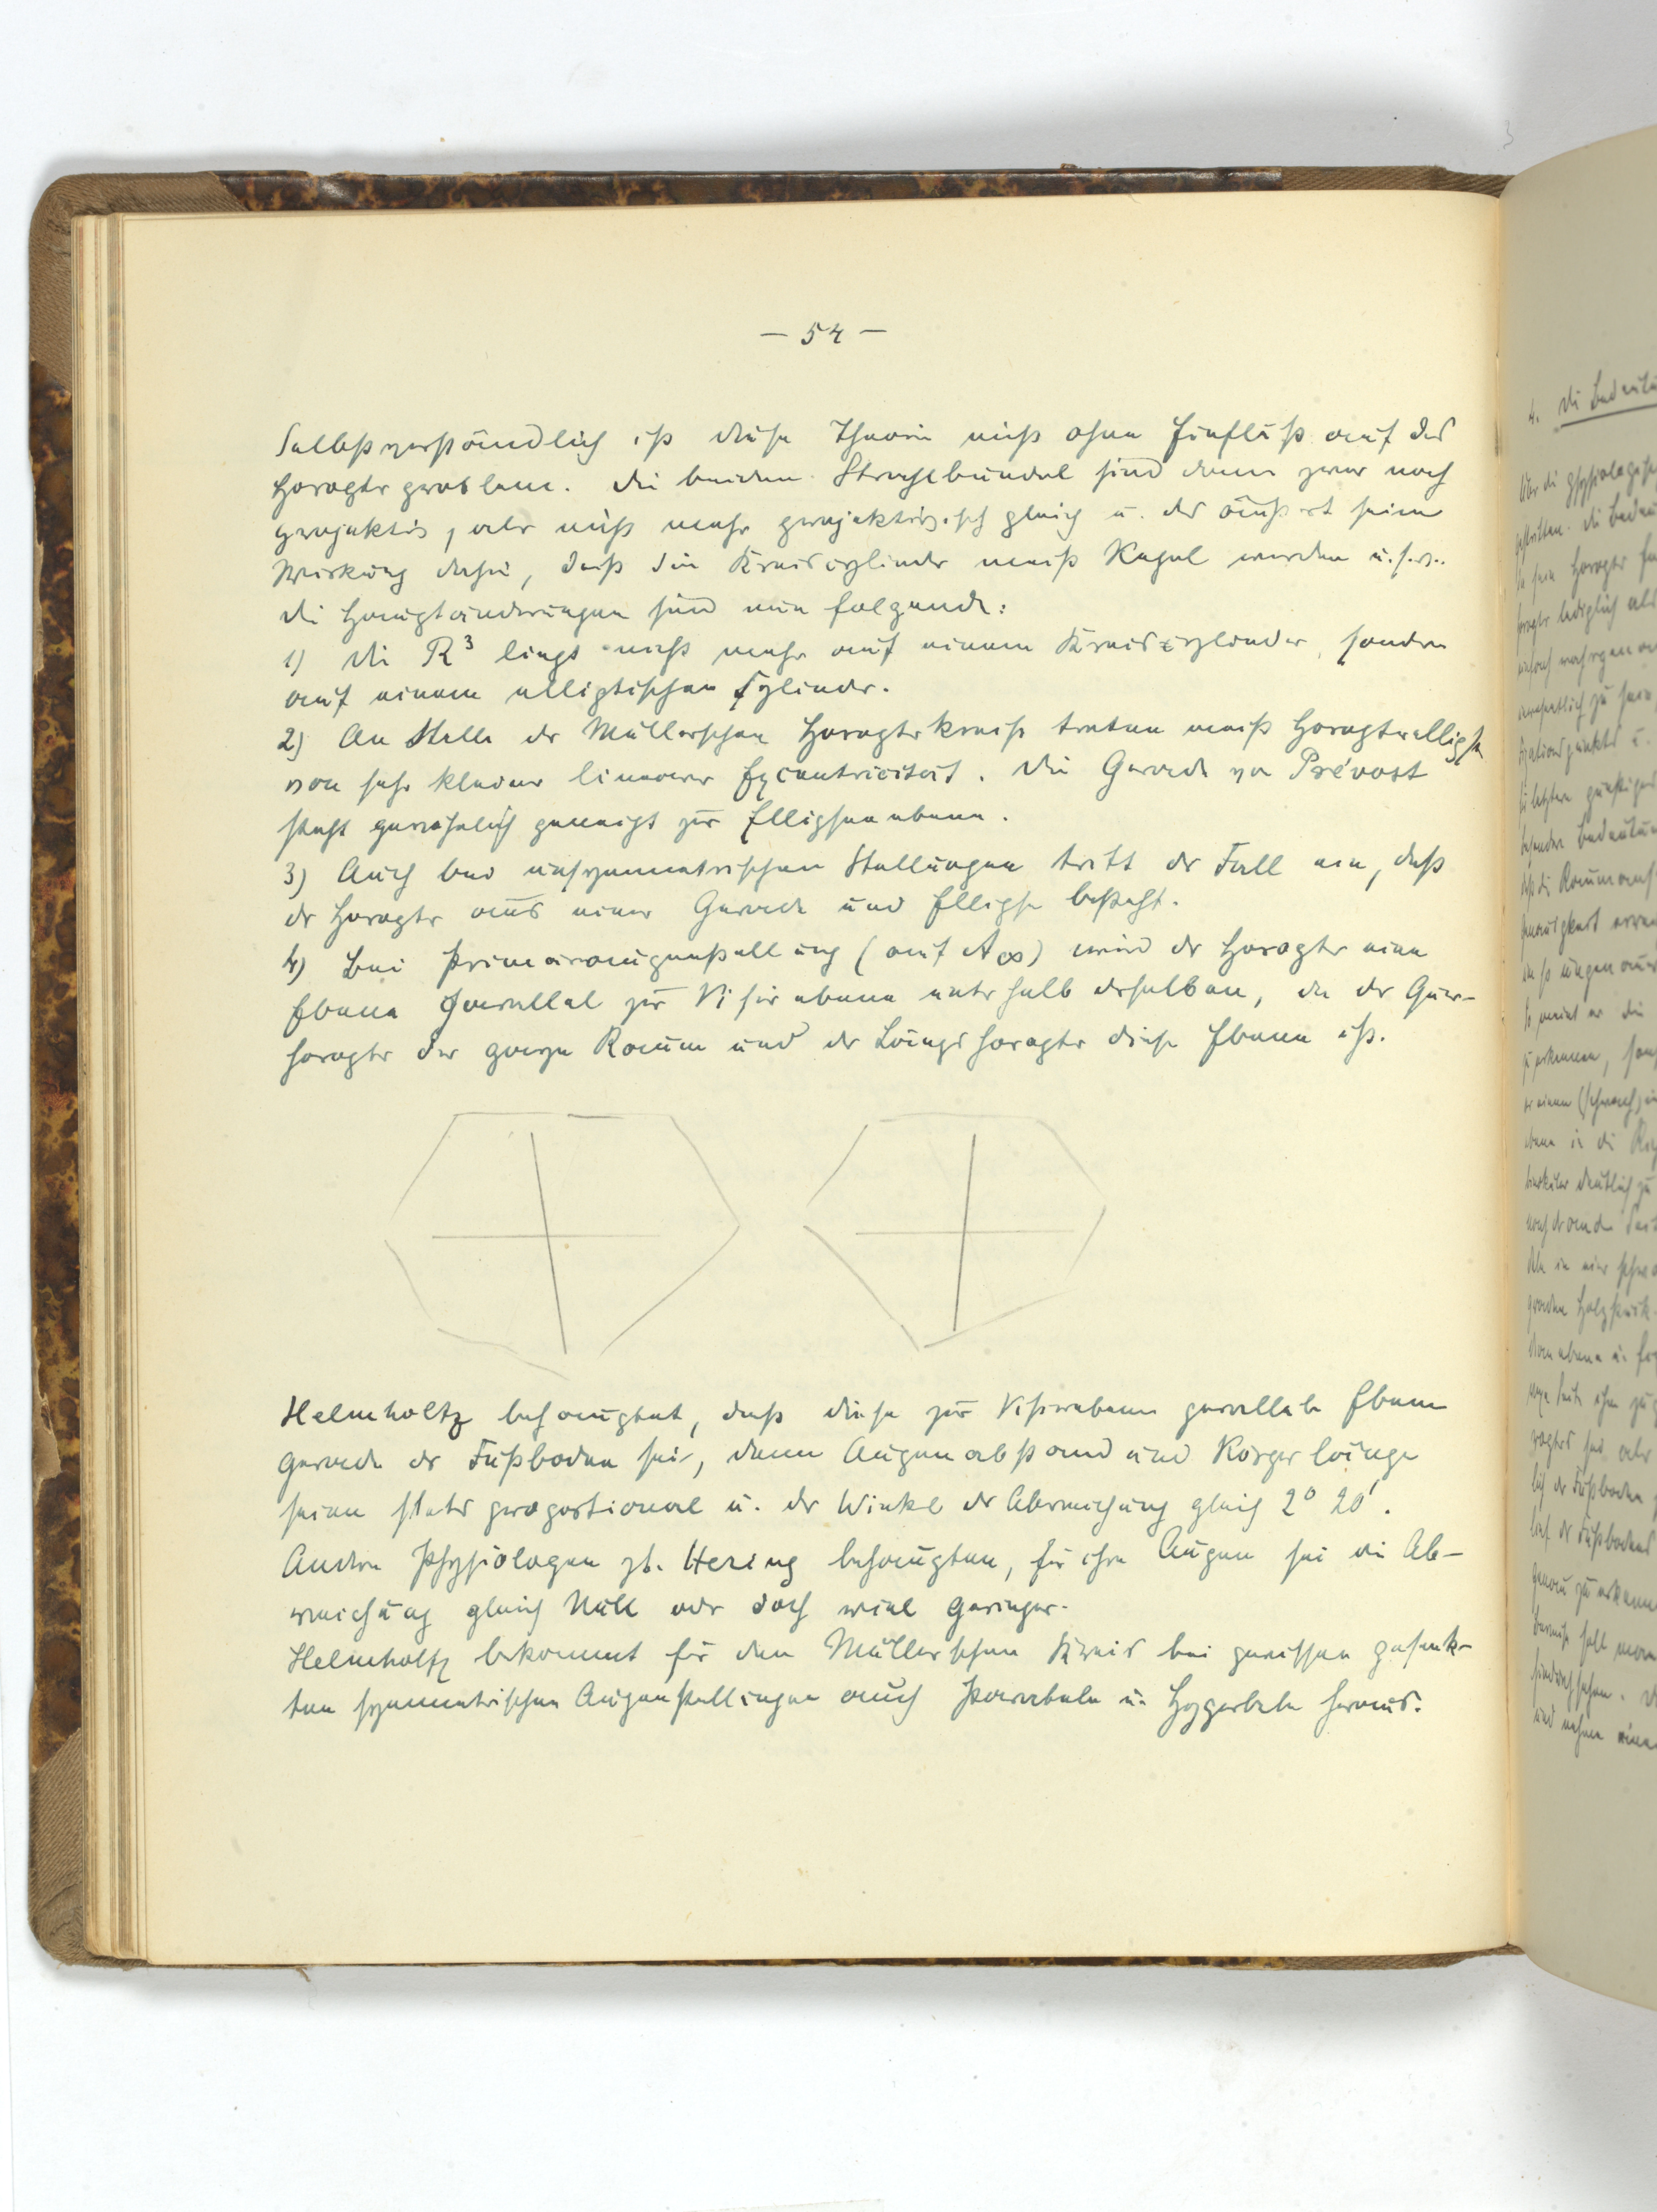 — 54 —
Selbstverständlich ist diese Theorie nicht ohne Einfluß auf das
Horopterproblem. Die beiden Strahlbündel sind dann zwar noch
projektiv, aber nicht mehr projektivisch gleich u. das äußert seine
Wirkung dahin, daß die Kreiscylinder meist Kegel werden u.s.w.
Die Hauptänderungen sind nun folgende:
1) Die R³ liegt nicht mehr auf einem Kreiscylinder, sondern
auf einem elliptischen Cylinder.
2) An Stelle der Müllerschen Horopterkreise treten meist Horopterellipsen
von sehr kleiner linearer Excentricität. Die Gerade von Prévost
steht gewöhnlich geneigt zur Ellipsenebene.
3) Auch bei unsymmetrischen Stellungen tritt der Fall ein, daß
der Horopter aus einer Gerade und Ellipse besteht.
4) Bei Primäraugenstellung (auf A∞) wird der Horopter eine
Ebene parallel zur Visirebene unterhalb derselben, da der Quer-
horopter der ganze Raum und der Längshoropter diese Ebene ist.
Helmholtz behauptet, daß diese zur Visirebene parallele Ebene
gerade der Fußboden sei, denn Augenabstand und Körperlänge
seien stets proportional u. der Winkel der Abweichung gleich 2° 20'.
Andere Physiologen zb. Hering behaupten, für ihre Augen sei die Ab-
weichung gleich Null oder doch viel geringer.
Helmholtz bekommt für den Müllerschen Kreis bei gewissen gesenk-
ten symmetrischen Augenstellungen auch Parabeln u. Hyperbeln heraus.
4. Die Bedeutu